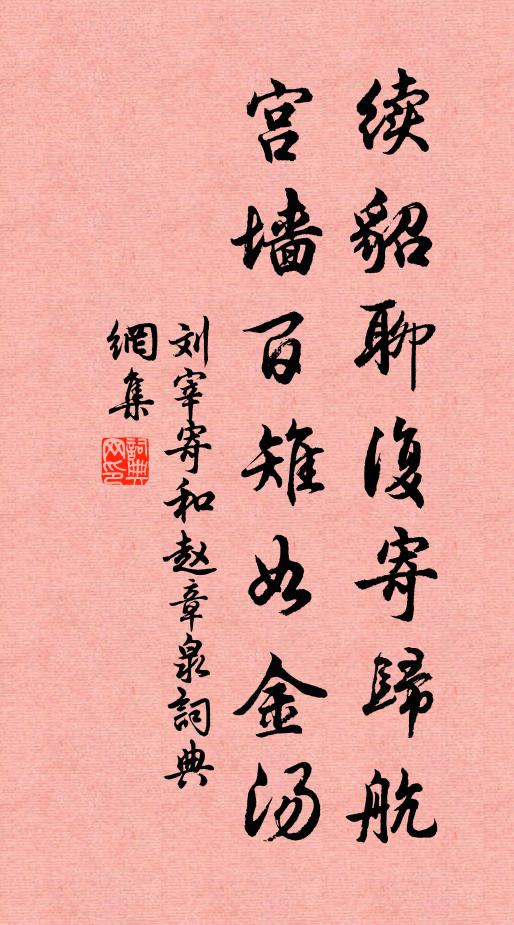 续貂聊復寄歸航
宫墙百雉如金汤
刘宰寄和赵章泉詞典
網集
詞典網印